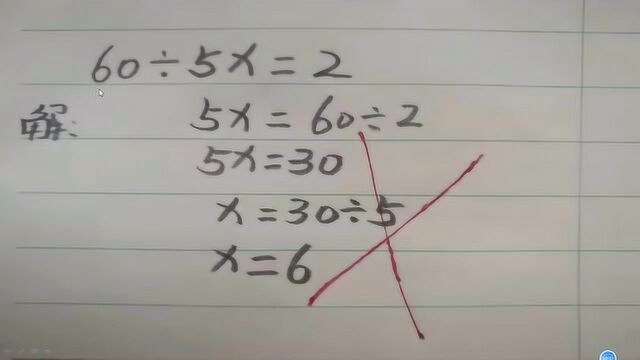 60÷5x=2
解: 5x=60÷2
5x=30
x=30÷5
x=6